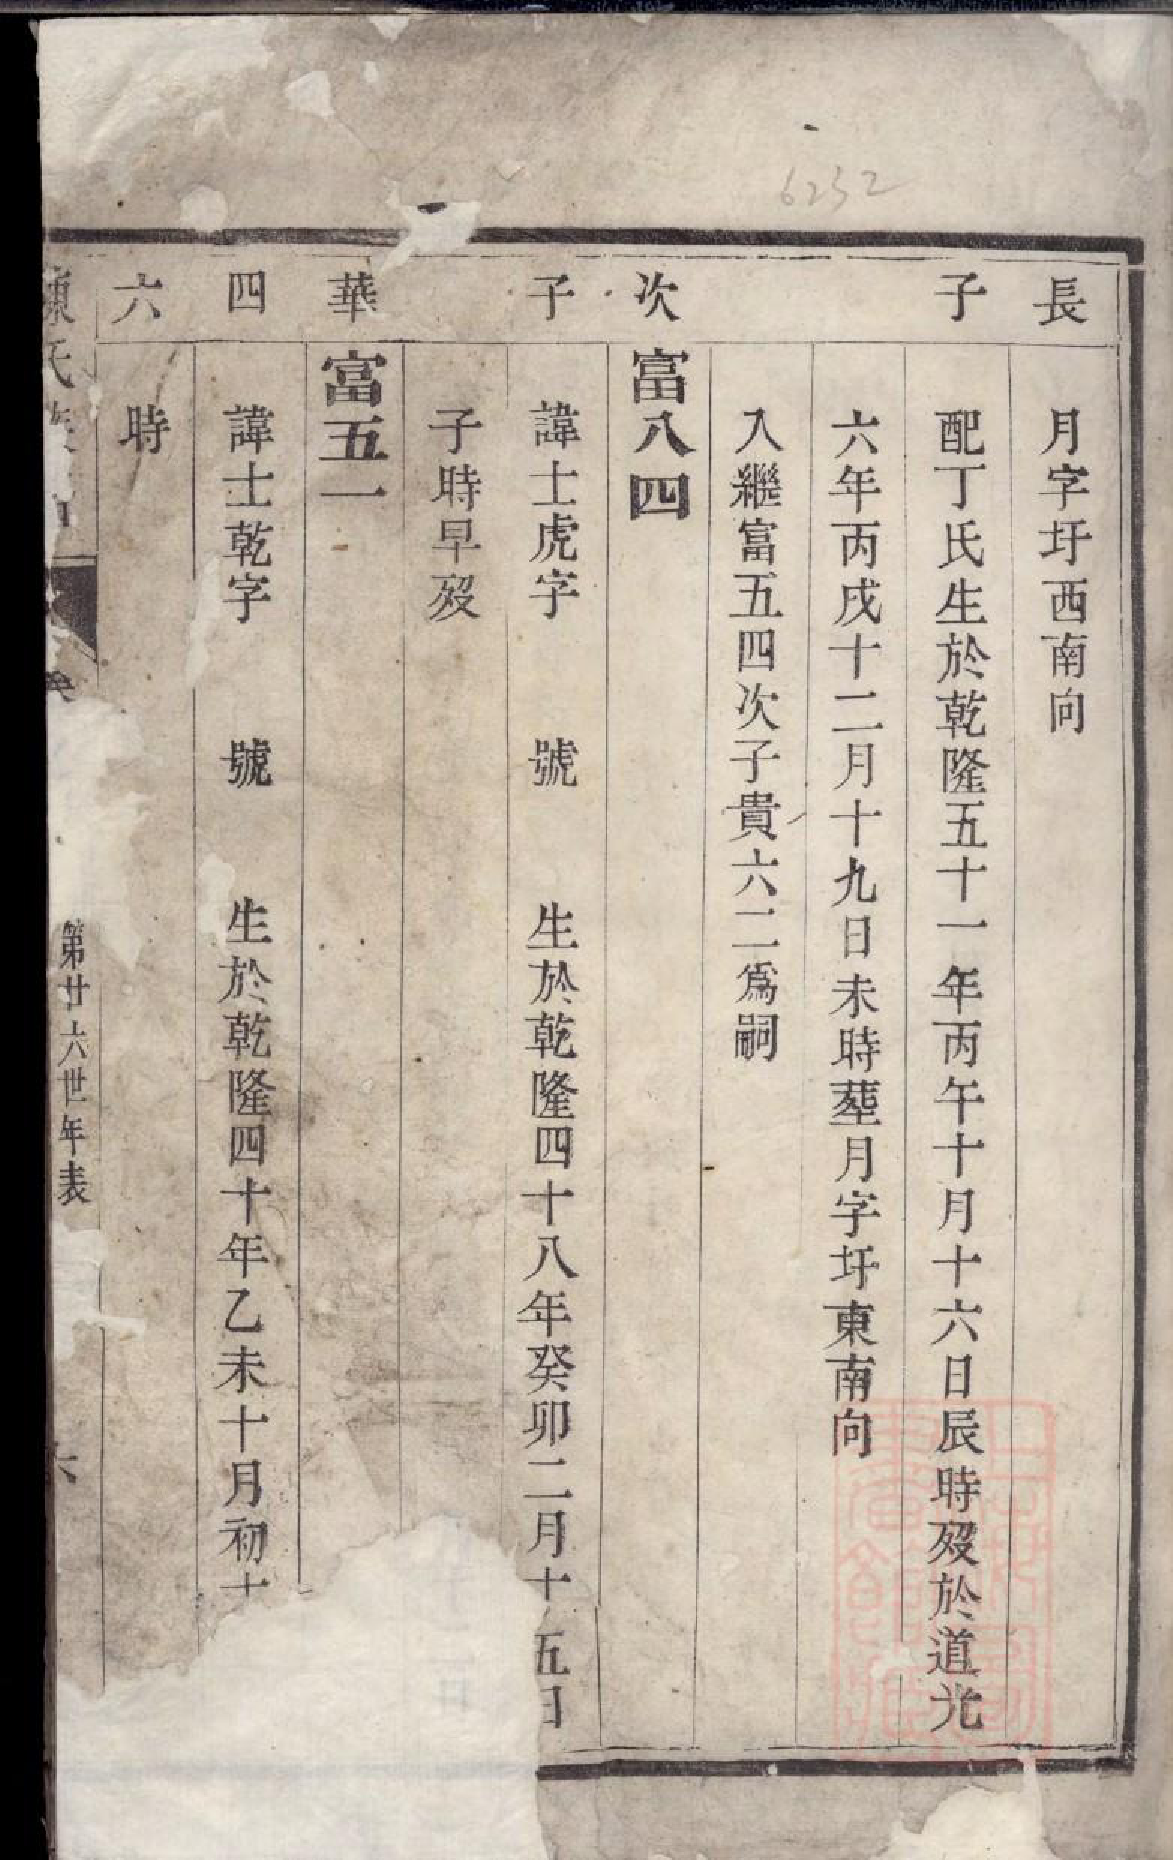 6232
長
月字圩西南向
子
配丁氏生於乾隆五十一年丙午十月十六日辰時歿於道光
六年丙戌十二月十九日未時塟月字圩東南向
入繼富五四次子貴六二爲嗣
次
富八四
子
諱士虎字 號 生於乾隆四十八年癸卯二月十五日
子時早歿
華
富五一
四
諱士乾字 號 生於乾隆四十年乙未十月初十
六
時
氏
第廿六世年表
六